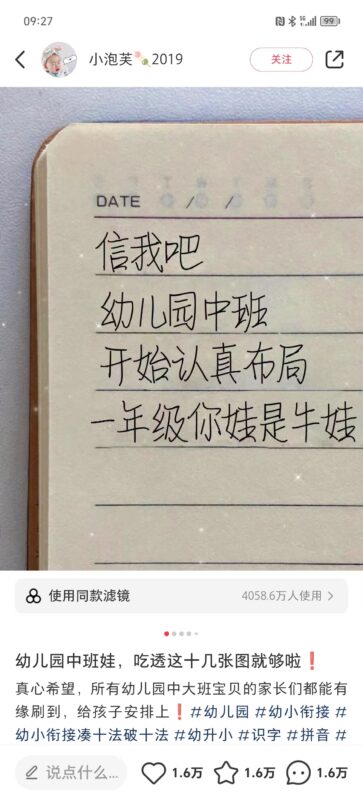 09:27
5G
99
小泡芙🍡2019
关注
DATE / /
信我吧
幼儿园中班
开始认真布局
一年级你娃是牛娃
使用同款滤镜
4058.6万人使用 >
幼儿园中班娃，吃透这十几张图就够啦❗
真心希望，所有幼儿园中大班宝贝的家长们都能有
缘刷到，给孩子安排上❗#幼儿园 #幼小衔接 #
幼小衔接凑十法破十法 #幼升小 #识字 #拼音 #
说点什么...
1.6万
1.6万
1.6万